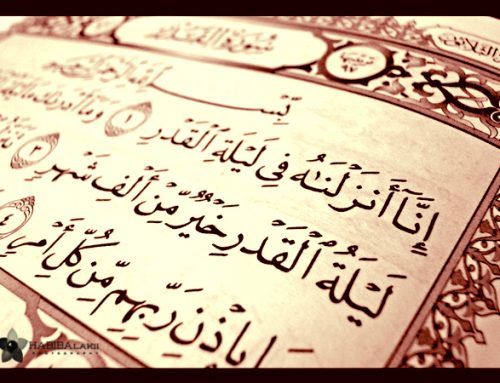 سُورَةُ الْقَدْرِ
بِسْمِ اللَّهِ الرَّحْمَنِ الرَّحِيمِ
إِنَّآ أَنزَلْنَٰهُ فِى لَيْلَةِ ٱلْقَدْرِ ١ وَمَآ أَدْرَىٰكَ
لَيْلَةُ ٱلْقَدْرِ خَيْرٌ مِّنْ أَلْفِ شَهْرٍ ٣
بِإِذْنِ رَبِّهِم مِّن كُلِّ أَمْرٍ ٤
HABIBALAKII
PHOTOGRAPHY